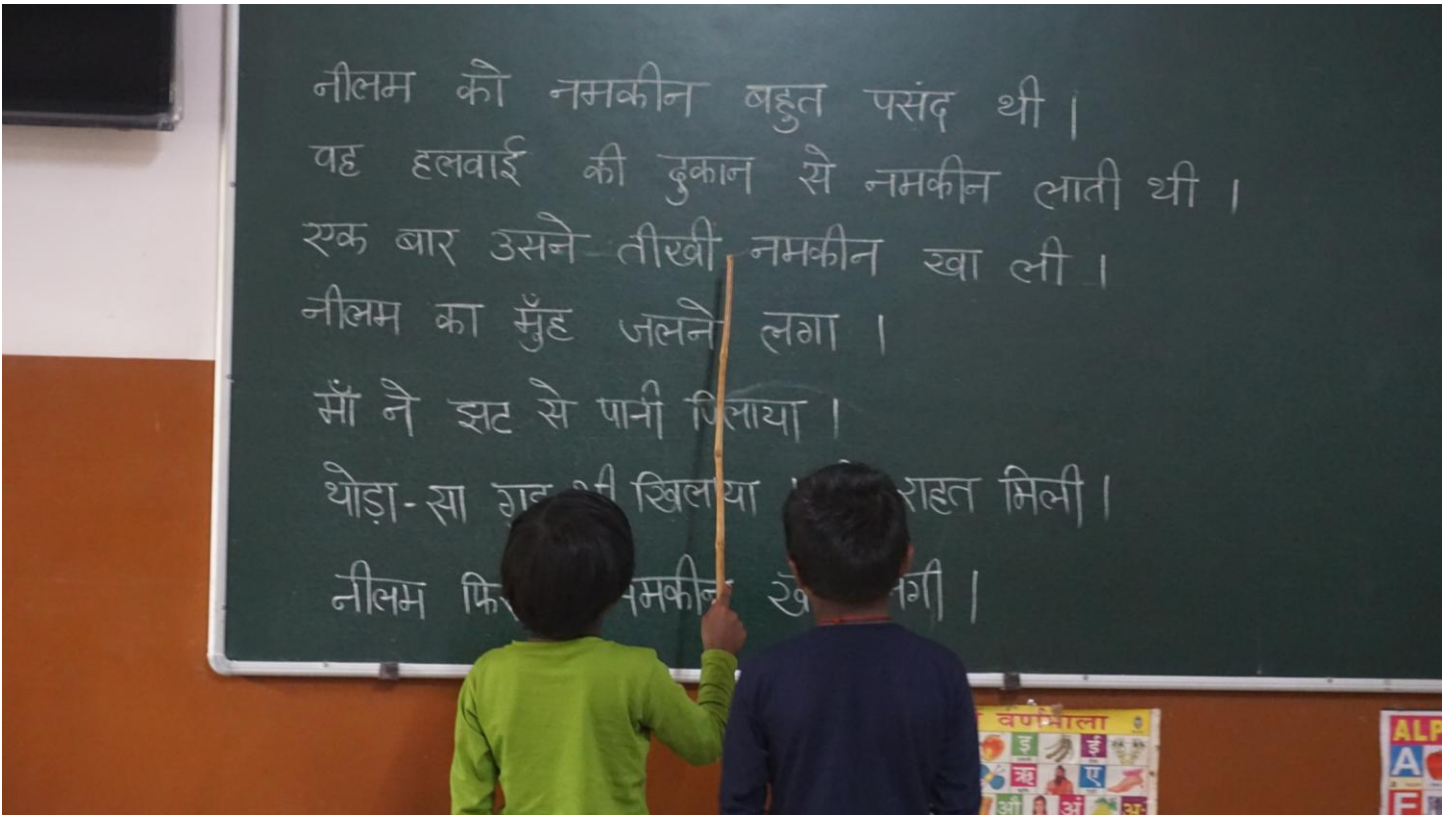 नीलम को नमकीन बहुत पसंद थी ।
वह हलवाई की दुकान से नमकीन लाती थी ।
एक बार उसने तीखी नमकीन खा ली ।
नीलम का मुँह जलने लगा ।
माँ ने झट से पानी पिलाया ।
थोड़ा-सा खिलाया राहत मिली ।
नीलम
वर्णमाला
इ ई
ऋ ए
औ अं अः
ALP
A
F